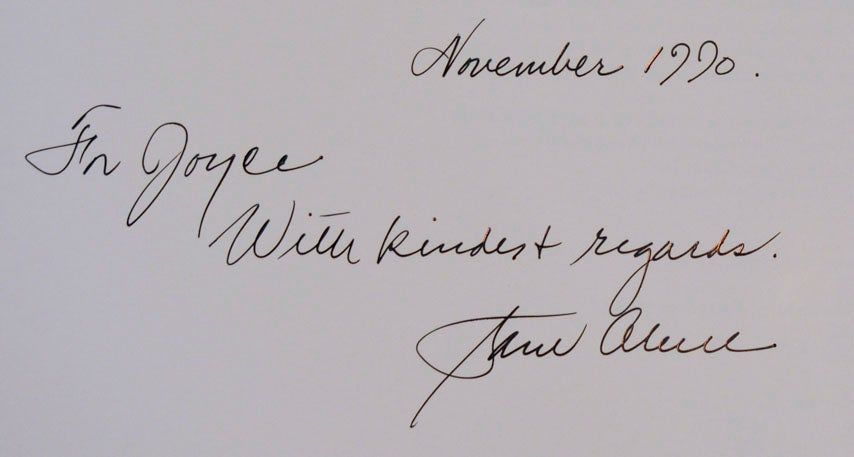 November 1990.
For Joyce
With kindest regards.